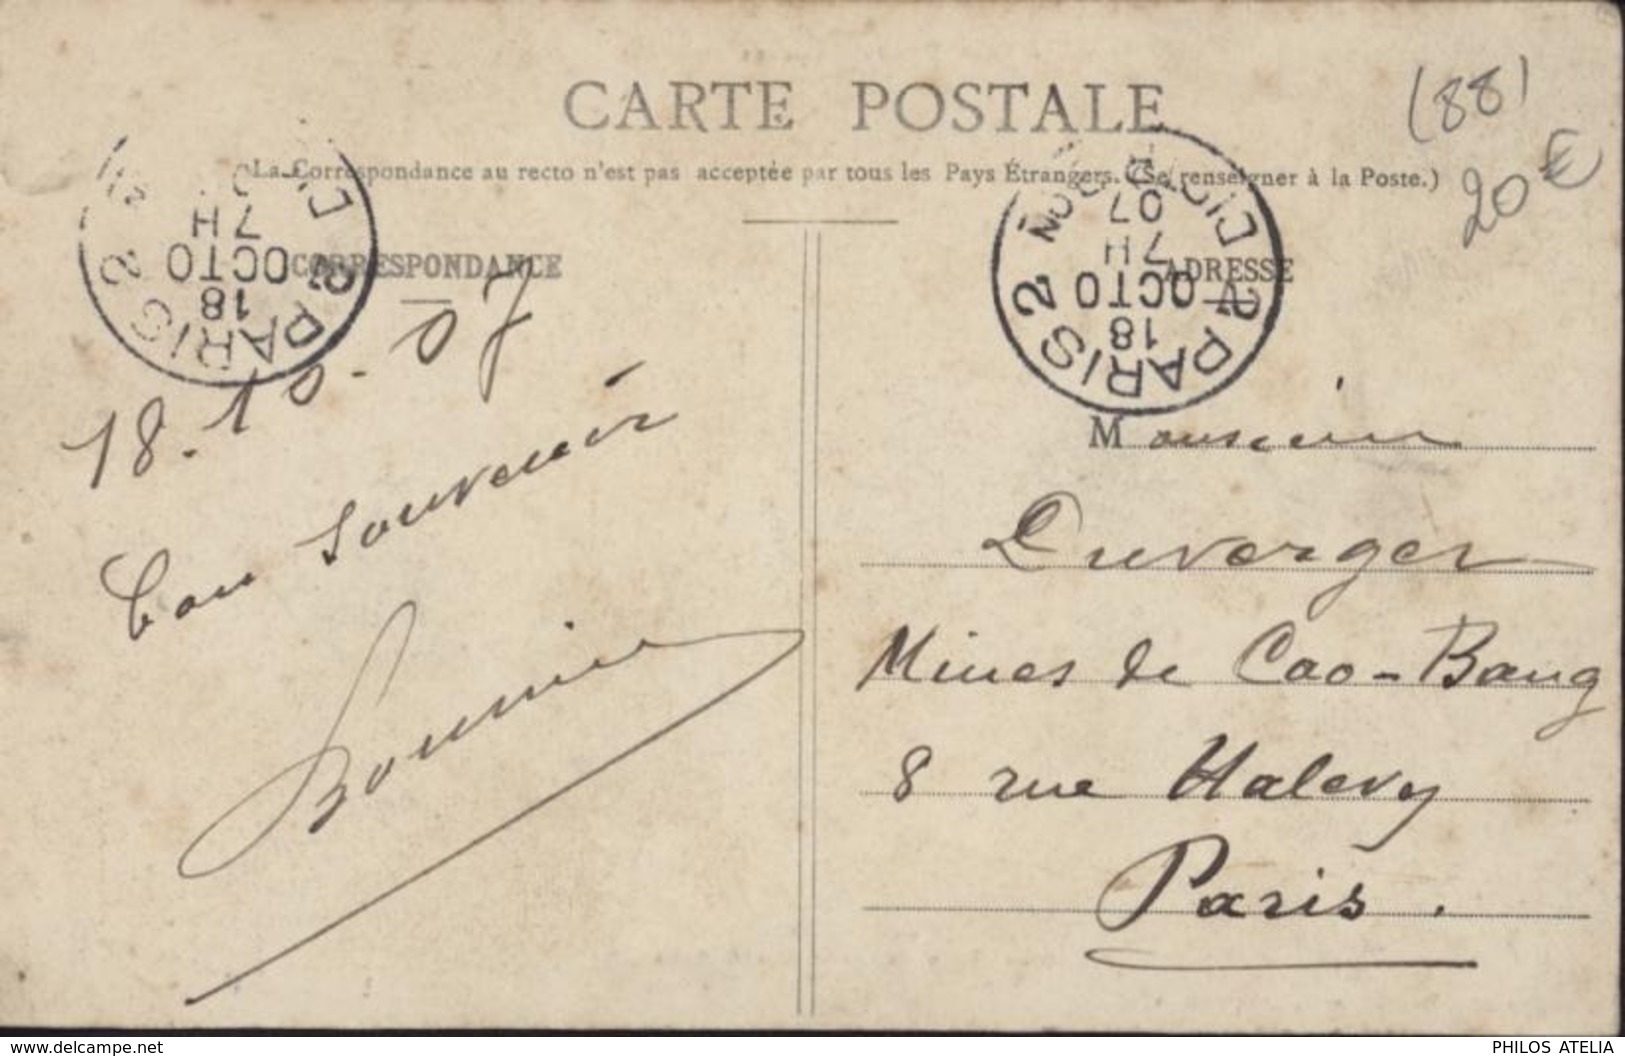 CARTE POSTALE
La Correspondance au recto n'est pas acceptée par tous les Pays Étrangers. (Se renseigner à la Poste.)
(88)
20€
CORRESPONDANCE
ADRESSE
PARIS 2
18
OCTO
7H
PARIS 2
18
OCTO
7H
07
18-10-07
bon souvenir
Monsieur
Duverger
Mines de Cao-Bang
8 rue Halevy
Paris.
www.delcampe.net
PHILOS ATELIA